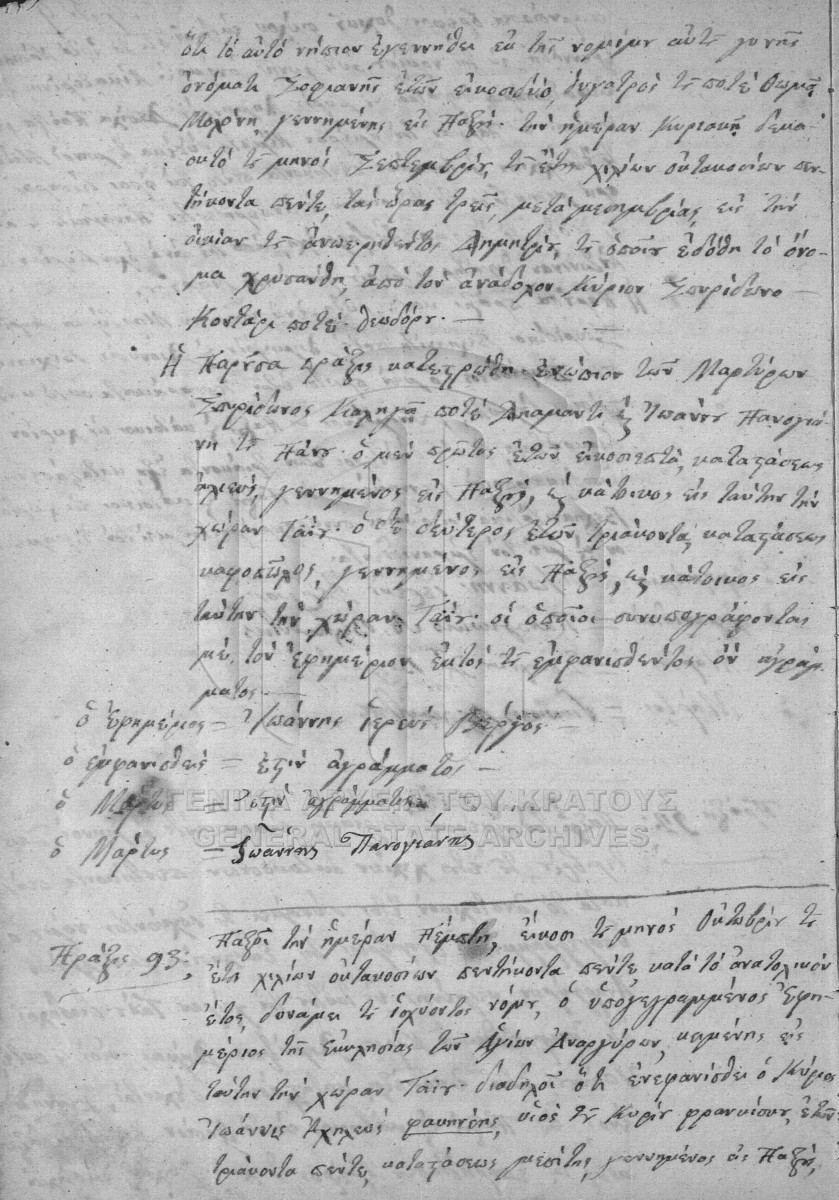 ὅτι τὸ αὐτὸ νήπιον ἐγεννήθει ἐκ τῆς νομίμου αὐτοῦ γυνῆς
ὀνόματι Σοφιανῆς ἐτῶν εἰκοσιδύο, θυγατρὸς τοῦ ποτὲ Θωμᾶ
γεννημένης εἰς Παξοὺς τὴν ἡμέραν Κυριακὴ δεκα-
οκτὼ τοῦ μηνὸς Σεπτεμβρίου, τοῦ ἔτους χιλίων ὀκτακοσίων πεν-
τήκοντα πέντε, τὰς ὥρας τρεῖς, μετὰ μεσημβρίας, εἰς τὴν
οἰκίαν τοῦ ἀνωειρηθέντος Δημητρίου, τοῦ ὁποίου ἐδόθη τὸ ὄνο-
μα χρυσάνθη, ἀπὸ τὸν ἀνάδοχον Κύριον Σπυρίδωνα
Κοντάρι ποτὲ θεωδόρου. —
Ἡ Παροῦσα πρᾶξις κατεστρώθη ἐνώπιον τῶν Μαρτύρων
Σπυρίδωνος ποτὲ Διαμάντι καὶ Ἰωάννου Πανογιά-
νη τοῦ Πάνου. ὁ μὲν πρῶτος ἐτῶν εἰκοσιεπτά, καταστάσεως
ἁλιεύς, γεννημένος εἰς Παξούς, καὶ κάτοικος εἰς ταύτην τὴν
χώραν Γάϊου. ὁ δὲ δεύτερος ἐτῶν τριάκοντα, καταστάσεως
γεννημένος εἰς Παξούς, καὶ κάτοικος εἰς
ταύτην τὴν χώραν Γάϊου. οἱ ὁποῖοι συνυπογράφονται
μὲ τὸν Ἐφημέριον ἐκτὸς τοῦ ἐμφανισθέντος ὂν ἀγράμ-
ματος. —
ὁ Ἐφημέριος = Ἰωάννης Ἱερεὺς Βέργος —
ὁ ἐμφανισθεὶς = ἐστὶν ἀγράμματος —
ὁ Μάρτυς = ἐστὶν ἀγράμματος
ὁ Μάρτυς = Ἰωάννης Πανογιάνης
ΓΕΝΙΚΑ ΑΡΧΕΙΑ ΤΟΥ ΚΡΑΤΟΥΣ
GENERAL STATE ARCHIVES
Πρᾶξις 93:
Παξοὶ τὴν ἡμέραν Πέμπτη, εἴκοσι τοῦ μηνὸς Ὀκτωβρίου τοῦ
ἔτους χιλίων ὀκτακοσίων πεντήκοντα πέντε, κατὰ τὸ ἀνατολικὸν
ἔτος, δυνάμει τοῦ ἰσχύοντος νόμου, ὁ ὑπογεγραμμένος Ἐφη-
μέριος τῆς ἐκκλησίας τῶν Ἁγίων Ἀναργύρων, κειμένης εἰς
ταύτην τὴν χώραν Γάϊου. διαδηλοῖ ὅτι ἐνεφανίσθει ὁ Κύριος
Ἰωάννις Ἀχηλεὺς υἱὸς τοῦ Κυρίου φρανκίσκου, ἐτῶν
τριάκοντα πέντε, καταστάσεως μεσίτης, γεννημένος εἰς Παξούς,